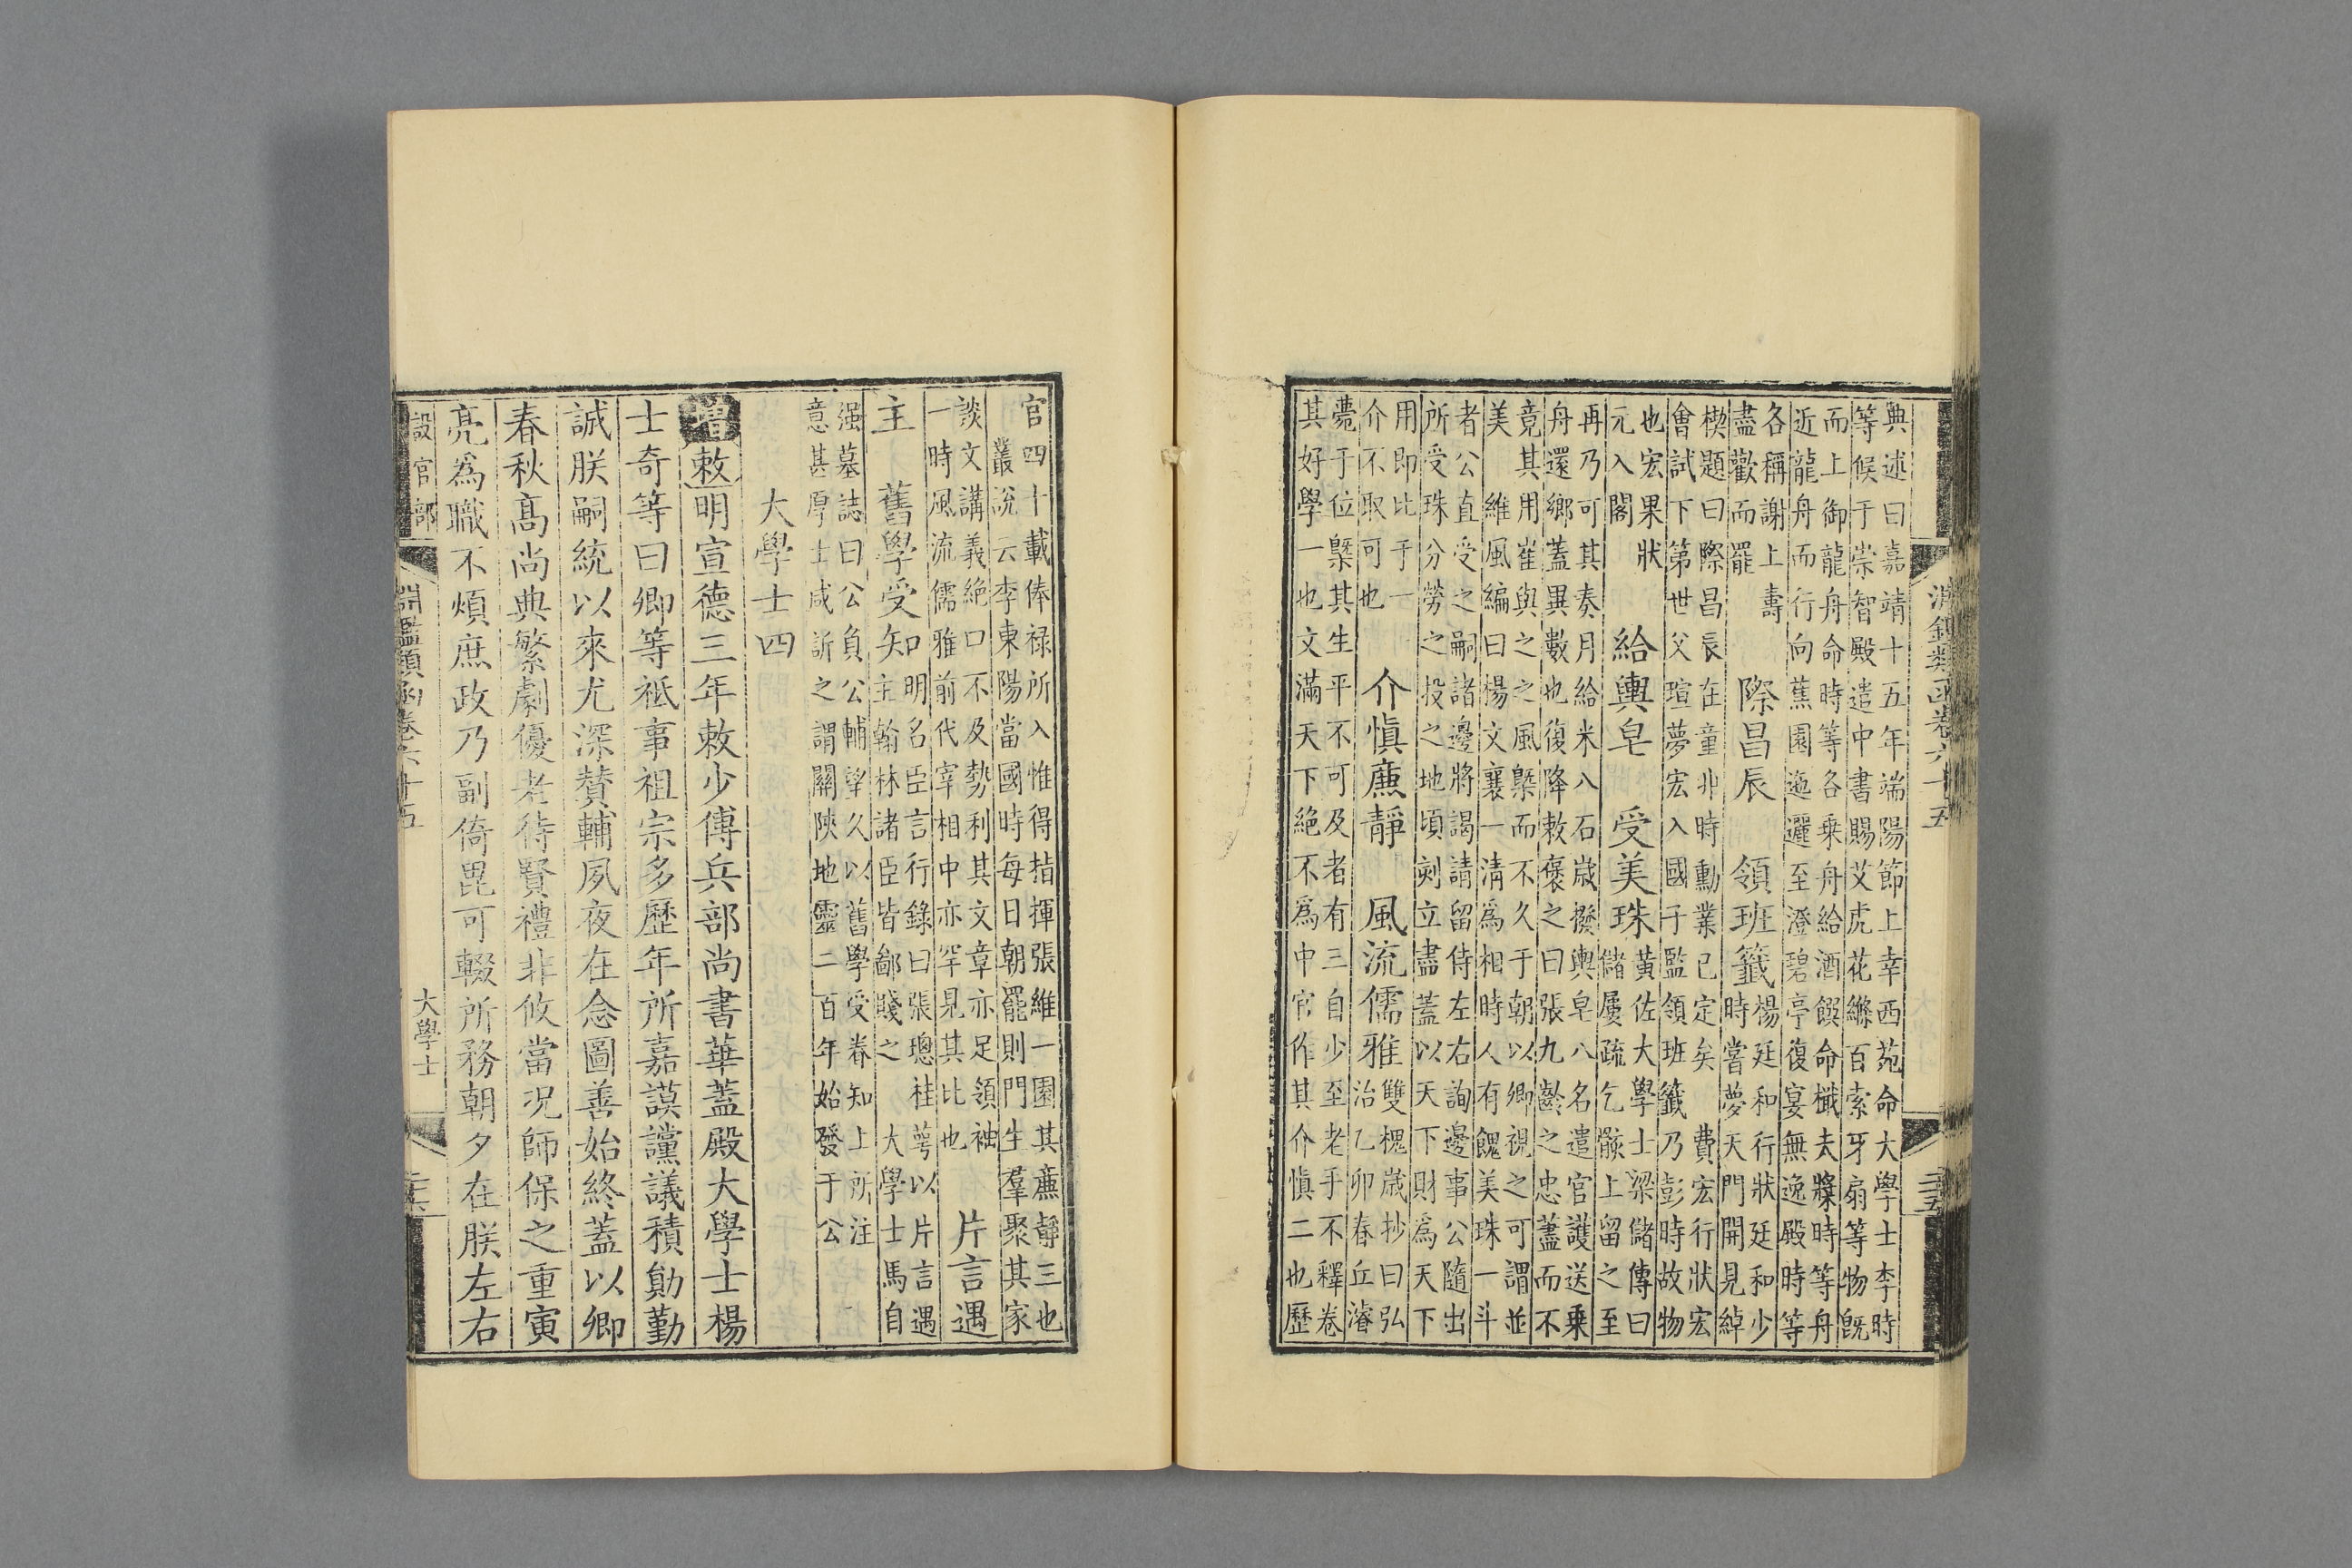 淵鑑類函卷六十五
二十五
典述曰嘉靖十五年端陽節上幸西苑命大學士李時
等候于崇智殿遣中書賜艾虎花縧百索牙扇等物旣
而上御龍舟命時等各乗舟給酒饌命檝夫槳時等舟
近龍舟而行向蕉園迤邐至澄碧亭復宴無逸殿時等
各稱謝上壽
盡歡而罷
際昌辰 領班籤
楊廷和行狀廷和少
時嘗夢天門開見綽
楔題曰際昌辰在童丱時勳業已定矣 費宏行狀宏
會試下第世父瑄夢宏入國子監領班籤乃彭時故物
也宏果狀
元入閣
給輿皂 受美珠
黃佐大學士梁儲傳曰
儲屢疏乞骸上留之至
再乃可其奏月給米八石歲撥輿皂八名遣官護送乗
舟還鄉蓋異數也復降敕褒之曰張九齡之忠藎而不
竟其用崔與之之風槩而不久于朝以卿視之可謂並
美 維風編曰楊文襄一淸爲相時人有餽美珠一斗
者公直受之嗣諸邊將謁請留侍左右詢邊事公隨出
所受珠分勞之投之地頃刻立盡蓋以天下財爲天下
用即比于一
介不取可也
介愼㢘靜 風流儒雅
雙槐歲抄曰弘
治乙卯春丘濬
薨于位槩其生平不可及者有三自少至老手不釋卷
其好學一也文滿天下絕不爲中官作其介愼二也歷
官四十載俸祿所入惟得指揮張維一園其㢘靜三也
叢說云李東陽當國時每日朝罷則門生羣聚其家
談文講義絕口不及勢利其文章亦足領袖
一時風流儒雅前代宰相中亦罕見其比也
片言遇
主 舊學受知
明名臣言行錄曰張璁桂萼以片言遇
主翰林諸臣皆鄙賤之 大學士馬自
强墓誌曰公負公輔望久以舊學受眷知上所注
意甚厚士咸訢之謂關陝地靈二百年始發于公
大學士四
增敕明宣德三年敕少傅兵部尚書華蓋殿大學士楊
士奇等曰卿等祗事祖宗多歷年所嘉謨讜議積勛勤
誠朕嗣統以來尤深贊輔夙夜在念圖善始終蓋以卿
春秋髙尚典繁劇優老待賢禮非攸當况師保之重寅
亮爲職不煩庶政乃副倚毘可輟所務朝夕在朕左右
設官部
淵鑑類函卷六十五
大學士
二十六